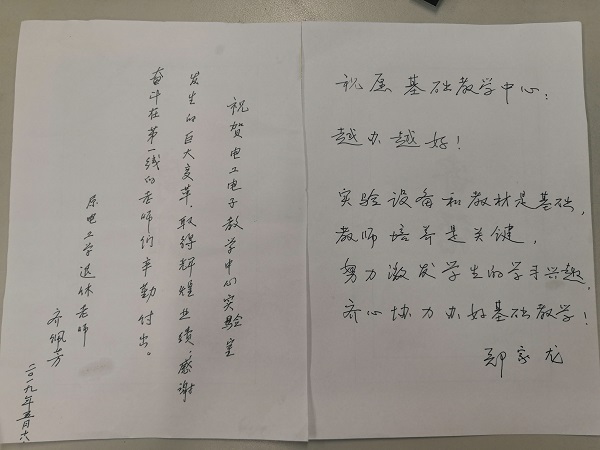 祝贺电工电子教学中心实验室
发生的巨大变革、取得辉煌业绩，感谢
奋斗在第一线的老师们辛勤付出。
原电工学退休老师
齐佩芳
二〇一九年五月六
祝愿基础教学中心：
越办越好！
实验设备和教材是基础，
教师培养是关键，
努力激发学生的学习兴趣，
齐心协力办好基础教学！
郑家龙